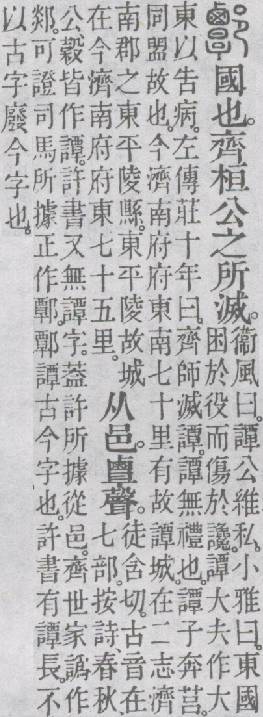 𨝸國也。齊桓公之所滅。衞風曰。譚公維私。小雅曰。東國
困於役而傷於讒。譚大夫作大
東以告病。左傳莊十年曰。齊師滅譚。譚無禮也。譚子奔莒。
同盟故也。今濟南府府東南七十里有故譚城。在二志濟
南郡之東平陵縣。東平陵故城
在今濟南府府東七十五里。从邑𪉷聲。徒含切。古音在
七部。按詩、春秋、
公穀皆作譚。許書又無譚字。葢許所據從邑。齊世家譌作
郯。可證司馬所據正作𨝸。𨝸譚古今字也。許書有譚長。不
以古字廢今字也。